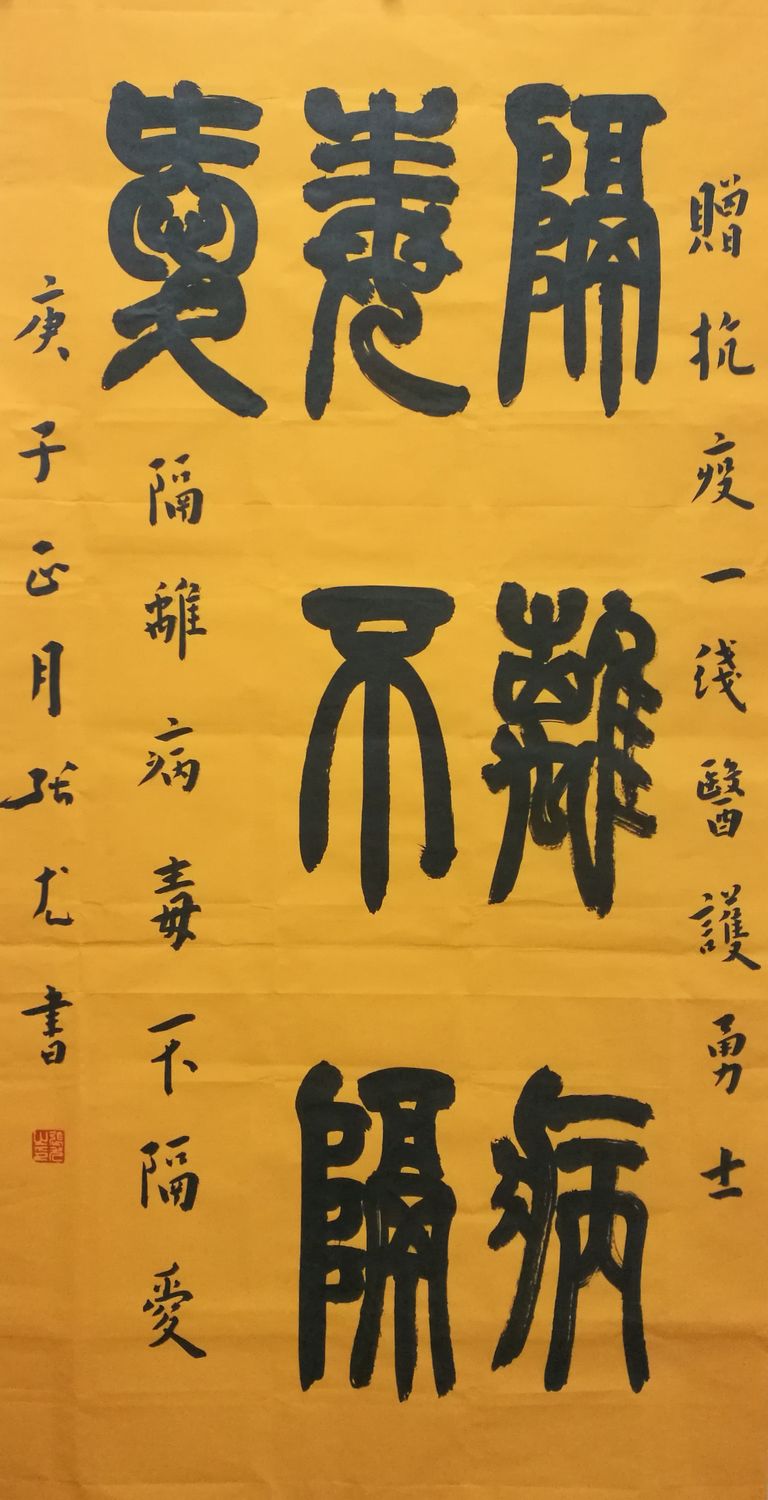 贈抗疫一线醫護勇士
隔離病
毒不隔
愛
隔離病毒不隔愛
庚子正月张尤書